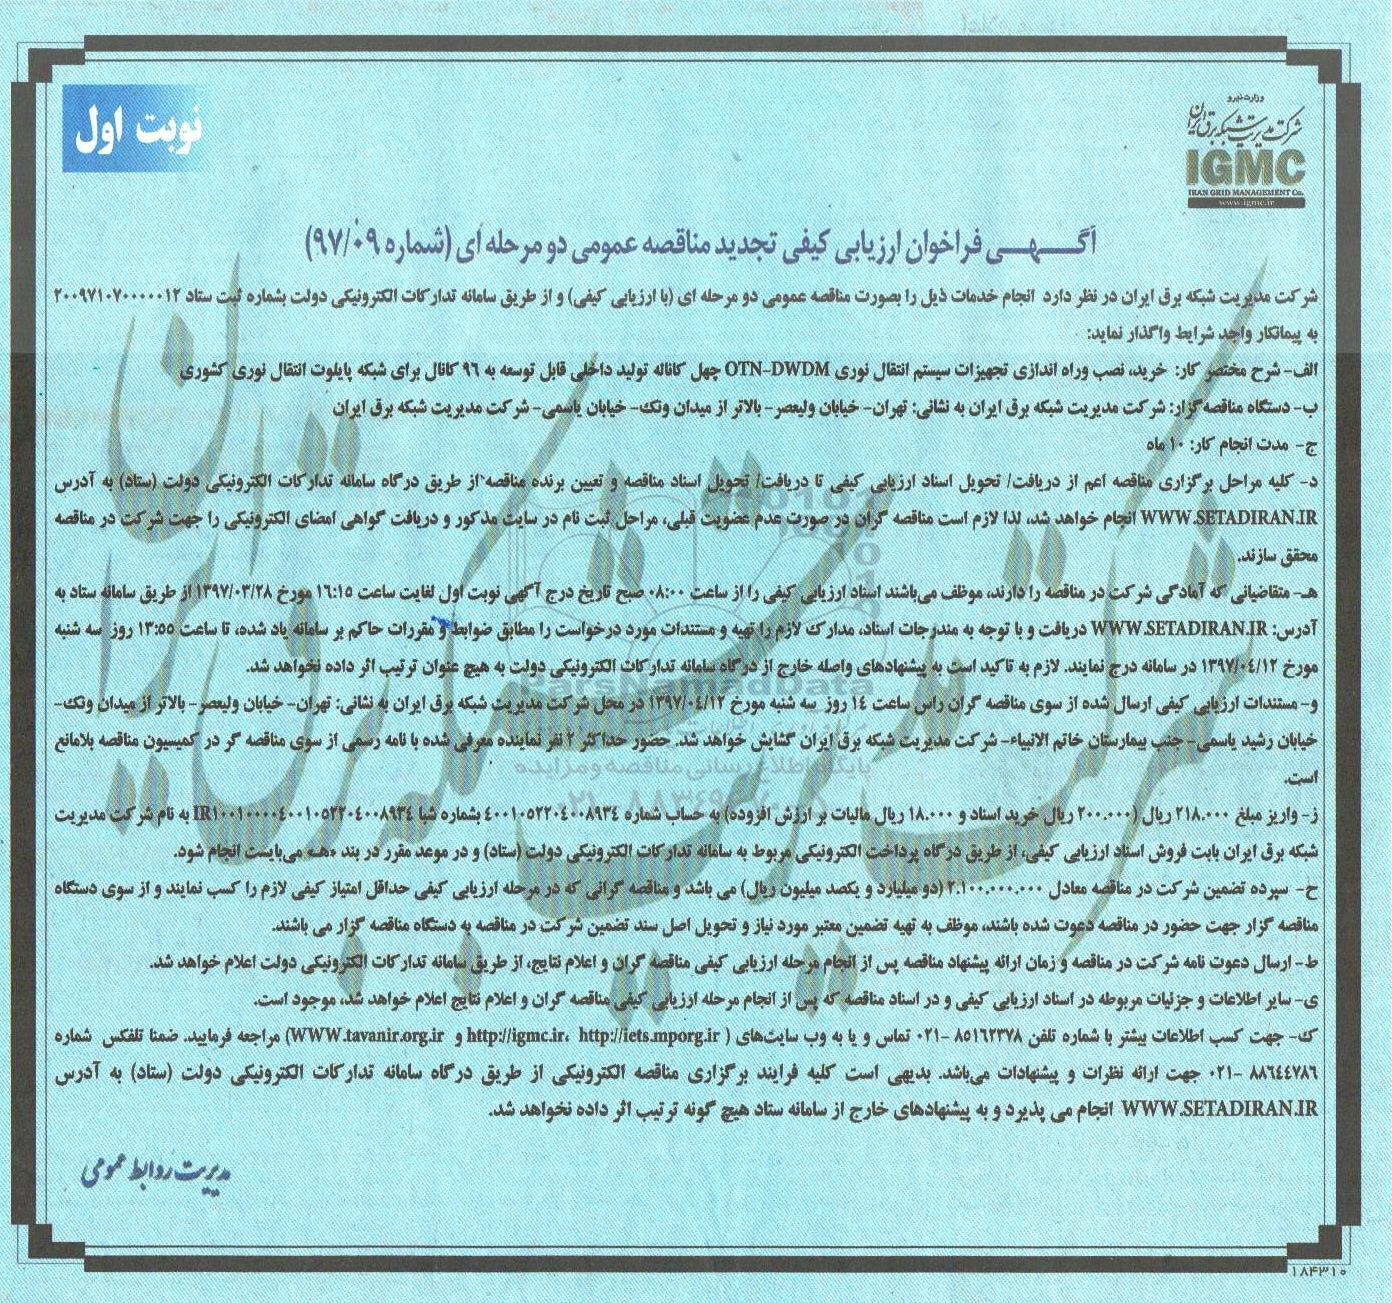 وزارت نیرو
شرکت مدیریت شبکه برق ایران
IGMC
IRAN GRID MANAGEMENT Co.
www.igmc.ir
نوبت اول
آگـــهـــی فراخوان ارزیابی کیفی تجدید مناقصه عمومی دو مرحله ای (شماره ۹۷/۰۹)
شرکت مدیریت شبکه برق ایران در نظر دارد انجام خدمات ذیل را بصورت مناقصه عمومی دو مرحله ای (با ارزیابی کیفی) و از طریق سامانه تدارکات الکترونیکی دولت بشماره ثبت ستاد ۲۰۰۹۷۱۰۷۰۰۰۰۰۱۲
به پیمانکار واجد شرایط واگذار نماید:
الف- شرح مختصر کار: خرید، نصب وراه اندازی تجهیزات سیستم انتقال نوری OTN-DWDM چهل کاناله تولید داخلی قابل توسعه به ۹۶ کانال برای شبکه پایلوت انتقال نوری کشوری
ب- دستگاه مناقصه گزار: شرکت مدیریت شبکه برق ایران به نشانی: تهران- خیابان ولیعصر- بالاتر از میدان ونک- خیابان یاسمی- شرکت مدیریت شبکه برق ایران
ج- مدت انجام کار: ۱۰ ماه
د- کلیه مراحل برگزاری مناقصه اعم از دریافت/ تحویل اسناد ارزیابی کیفی تا دریافت/ تحویل اسناد مناقصه و تعیین برنده مناقصه از طریق درگاه سامانه تدارکات الکترونیکی دولت (ستاد) به آدرس
WWW.SETADIRAN.IR انجام خواهد شد، لذا لازم است مناقصه گران در صورت عدم عضویت قبلی، مراحل ثبت نام در سایت مذکور و دریافت گواهی امضای الکترونیکی را جهت شرکت در مناقصه
محقق سازند.
هـ- متقاضیانی که آمادگی شرکت در مناقصه را دارند، موظف می‌باشند اسناد ارزیابی کیفی را از ساعت ۰۸:۰۰ صبح تاریخ درج آگهی نوبت اول لغایت ساعت ۱۶:۱۵ مورخ ۱۳۹۷/۰۳/۲۸ از طریق سامانه ستاد به
آدرس: WWW.SETADIRAN.IR دریافت و با توجه به مندرجات اسناد، مدارک لازم را تهیه و مستندات مورد درخواست را مطابق ضوابط و مقررات حاکم بر سامانه یاد شده، تا ساعت ۱۳:۵۵ روز سه شنبه
مورخ ۱۳۹۷/۰۴/۱۲ در سامانه درج نمایند. لازم به تاکید است به پیشنهادهای واصله خارج از درگاه سامانه تدارکات الکترونیکی دولت به هیچ عنوان ترتیب اثر داده نخواهد شد.
و- مستندات ارزیابی کیفی ارسال شده از سوی مناقصه گران راس ساعت ۱۴ روز سه شنبه مورخ ۱۳۹۷/۰۴/۱۲ در محل شرکت مدیریت شبکه برق ایران به نشانی: تهران- خیابان ولیعصر- بالاتر از میدان ونک-
خیابان رشید یاسمی- جنب بیمارستان خاتم الانبیاء- شرکت مدیریت شبکه برق ایران گشایش خواهد شد. حضور حداکثر ۲ نفر نماینده معرفی شده با نامه رسمی از سوی مناقصه گر در کمیسیون مناقصه بلامانع
است.
ز- واریز مبلغ ۲۱۸.۰۰۰ ریال (۲۰۰.۰۰۰ ریال خرید اسناد و ۱۸.۰۰۰ ریال مالیات بر ارزش افزوده) به حساب شماره ۴۰۰۱۰۵۲۲۰۴۰۰۸۹۳۴ بشماره شبا IR۱۰۰۱۰۰۰۰۴۰۰۱۰۵۲۲۰۴۰۰۸۹۳۴ به نام شرکت مدیریت
شبکه برق ایران بابت فروش اسناد ارزیابی کیفی، از طریق درگاه پرداخت الکترونیکی مربوط به سامانه تدارکات الکترونیکی دولت (ستاد) و در موعد مقرر در بند «هـ» می‌بایست انجام شود.
ح- سپرده تضمین شرکت در مناقصه معادل ۲.۱۰۰.۰۰۰.۰۰۰ (دو میلیارد و یکصد میلیون ریال) می باشد و مناقصه گرانی که در مرحله ارزیابی کیفی حداقل امتیاز کیفی لازم را کسب نمایند و از سوی دستگاه
مناقصه گزار جهت حضور در مناقصه دعوت شده باشند، موظف به تهیه تضمین معتبر مورد نیاز و تحویل اصل سند تضمین شرکت در مناقصه به دستگاه مناقصه گزار می باشند.
ط- ارسال دعوت نامه شرکت در مناقصه و زمان ارائه پیشنهاد مناقصه پس از انجام مرحله ارزیابی کیفی مناقصه گران و اعلام نتایج، از طریق سامانه تدارکات الکترونیکی دولت اعلام خواهد شد.
ی- سایر اطلاعات و جزئیات مربوطه در اسناد ارزیابی کیفی و در اسناد مناقصه که پس از انجام مرحله ارزیابی کیفی مناقصه گران و اعلام نتایج اعلام خواهد شد، موجود است.
ک- جهت کسب اطلاعات بیشتر با شماره تلفن ۸۵۱۶۲۳۷۸ -۰۲۱ تماس و یا به وب سایت‌های (http://igmc.ir، http://iets.mporg.ir و WWW.tavanir.org.ir) مراجعه فرمایید. ضمنا تلفکس شماره
۸۸۶۴۴۷۸۶ -۰۲۱ جهت ارائه نظرات و پیشنهادات می‌باشد. بدیهی است کلیه فرایند برگزاری مناقصه الکترونیکی از طریق درگاه سامانه تدارکات الکترونیکی دولت (ستاد) به آدرس
WWW.SETADIRAN.IR انجام می پذیرد و به پیشنهادهای خارج از سامانه ستاد هیچ گونه ترتیب اثر داده نخواهد شد.
مدیریت روابط عمومی
۱۸۴۳۱۰
ParsNamadData
پایگاه اطلاع رسانی مناقصه و مزایده